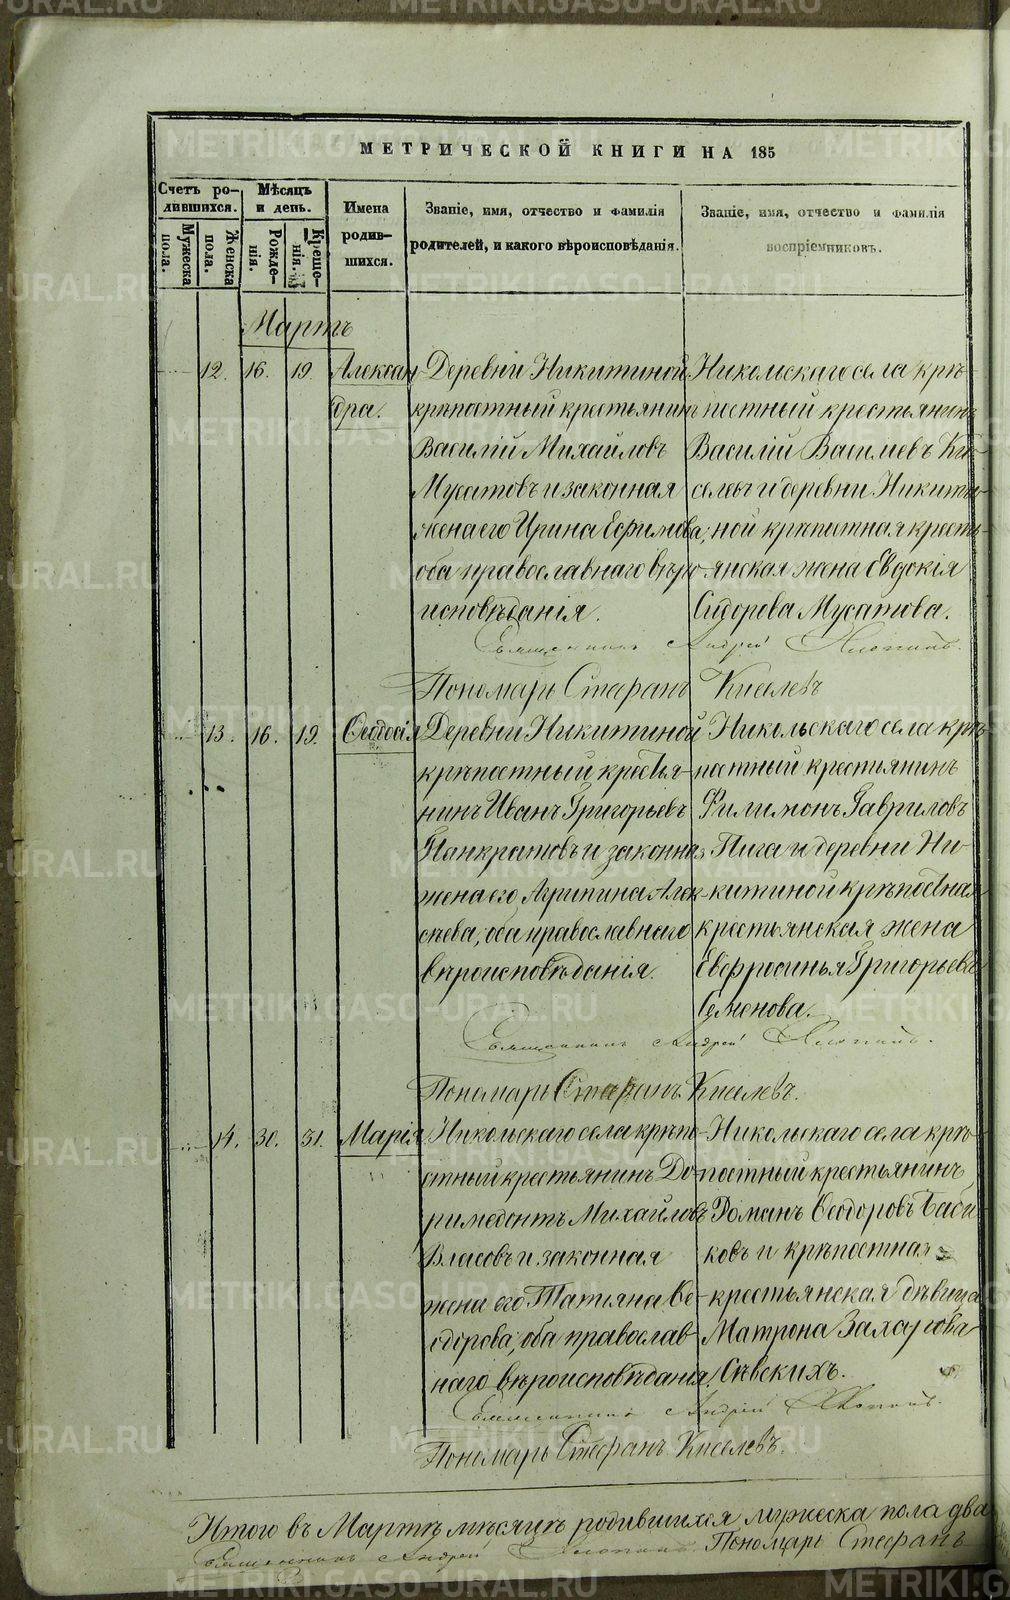 МЕТРИЧЕСКОЙ КНИГИ НА 185
Счетъ ро-
дившихся.
Мужеска
пола.
Женска
пола.
Мѣсяцъ
и день.
Рожде-
нія.
Креще-
нія.
Имена
родив-
шихся.
Званіе, имя, отчество и фамилія
родителей, и какого вѣроисповѣданія.
Званіе, имя, отчество и фамилія
воспріемниковъ.
Мартъ
12. 16. 19.
Алексан-
дра.
Деревни Никитиной
крѣпостный крестьянинъ
Василій Михайловъ
Мусатовъ и законная
жена его Ирина Ефимова,
оба православнаго вѣро-
исповѣданія.
Никольскаго села крѣ-
постный крестьянинъ
Василій Васильевъ Ки-
селевъ и деревни Никити-
ной крѣпостная кресть-
янская жена Евдокія
Сидорова Мусатова.
Священникъ Андрей
Пономарь Стефанъ Киселевъ
13. 16. 19.
Ѳеодосія
Деревни Никитиной
крѣпостный крестья-
нинъ Иванъ Григорьевъ
Панкратовъ и законная
жена его Агрипина Алек-
сѣева, оба православнаго
вѣроисповѣданія.
Никольскаго села крѣ-
постный крестьянинъ
Филимонъ Гавриловъ
Пига и деревни Ни-
китиной крѣпостная
крестьянская жена
Евфросинья Григорьева
Семенова.
Священникъ Андрей
Пономарь Стефанъ Киселевъ.
14. 30. 31.
Марія
Никольскаго села крѣпо-
стный крестьянинъ До-
римедонтъ Михайловъ
Власовъ и законная
жена его Татіяна Ѳе-
одорова, оба православ-
наго вѣроисповѣданія.
Никольскаго села крѣ-
постный крестьянинъ
Романъ Ѳеодоровъ Баби-
ковъ и крѣпостная
крестьянская дѣвица
Матрона Захарова
Сѣвскихъ.
Священникъ Андрей
Пономарь Стефанъ Киселевъ.
Итого въ Мартѣ мѣсяцѣ родившихся мужеска пола два
Священникъ Андрей Пономарь Стефанъ
METRIKI.GASO-URAL.RU